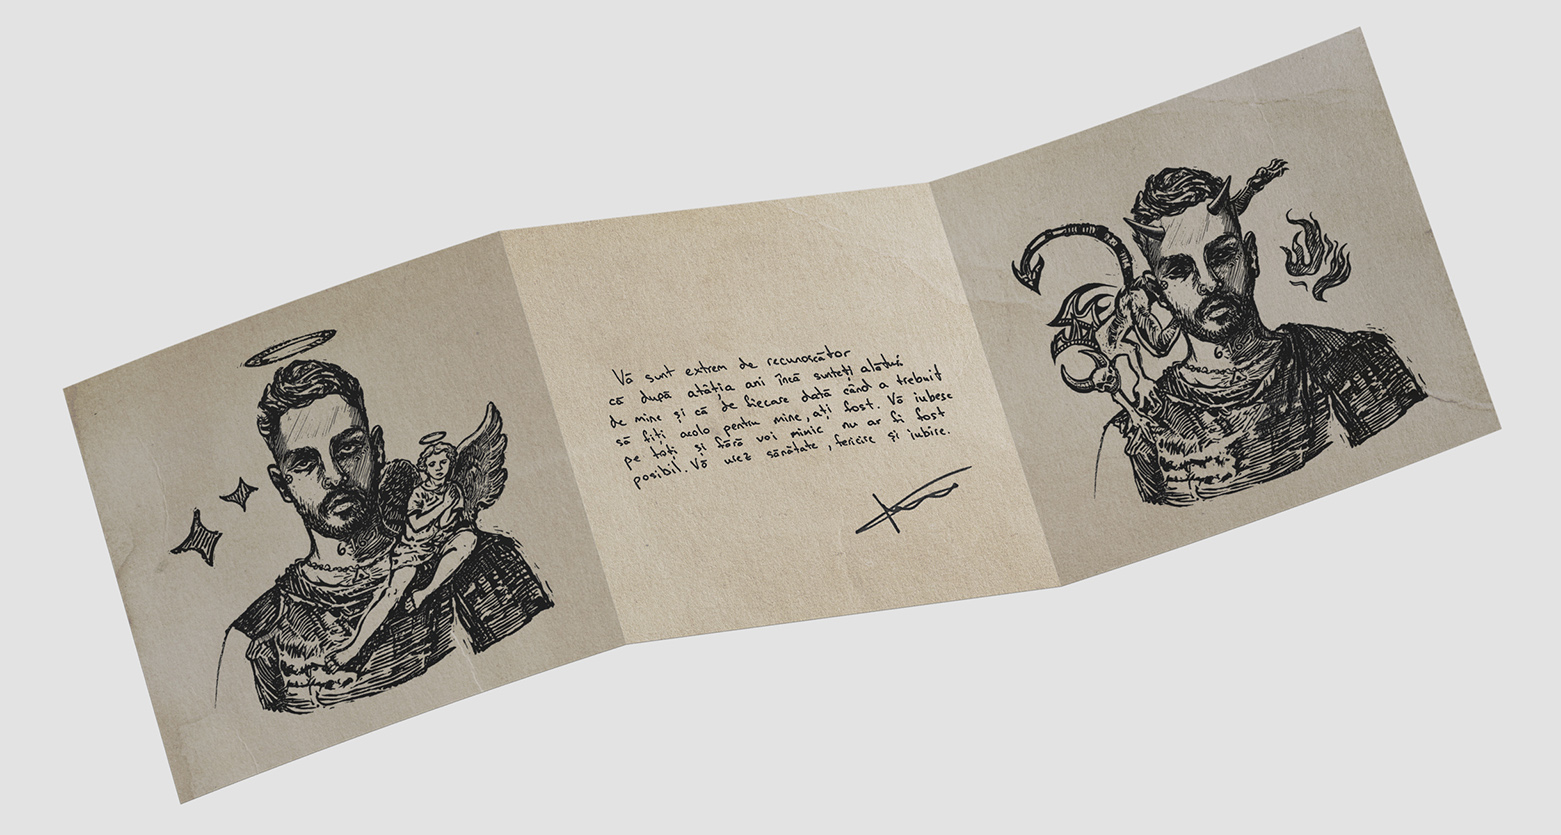 Vă sunt extrem de recunoscător
că după atâția ani încă sunteți alături
de mine și că de fiecare dată când a trebuit
să fiți acolo pentru mine, ați fost. Vă iubesc
pe toți și fără voi nimic nu ar fi fost
posibil. Vă urez sănătate, fericire și iubire.